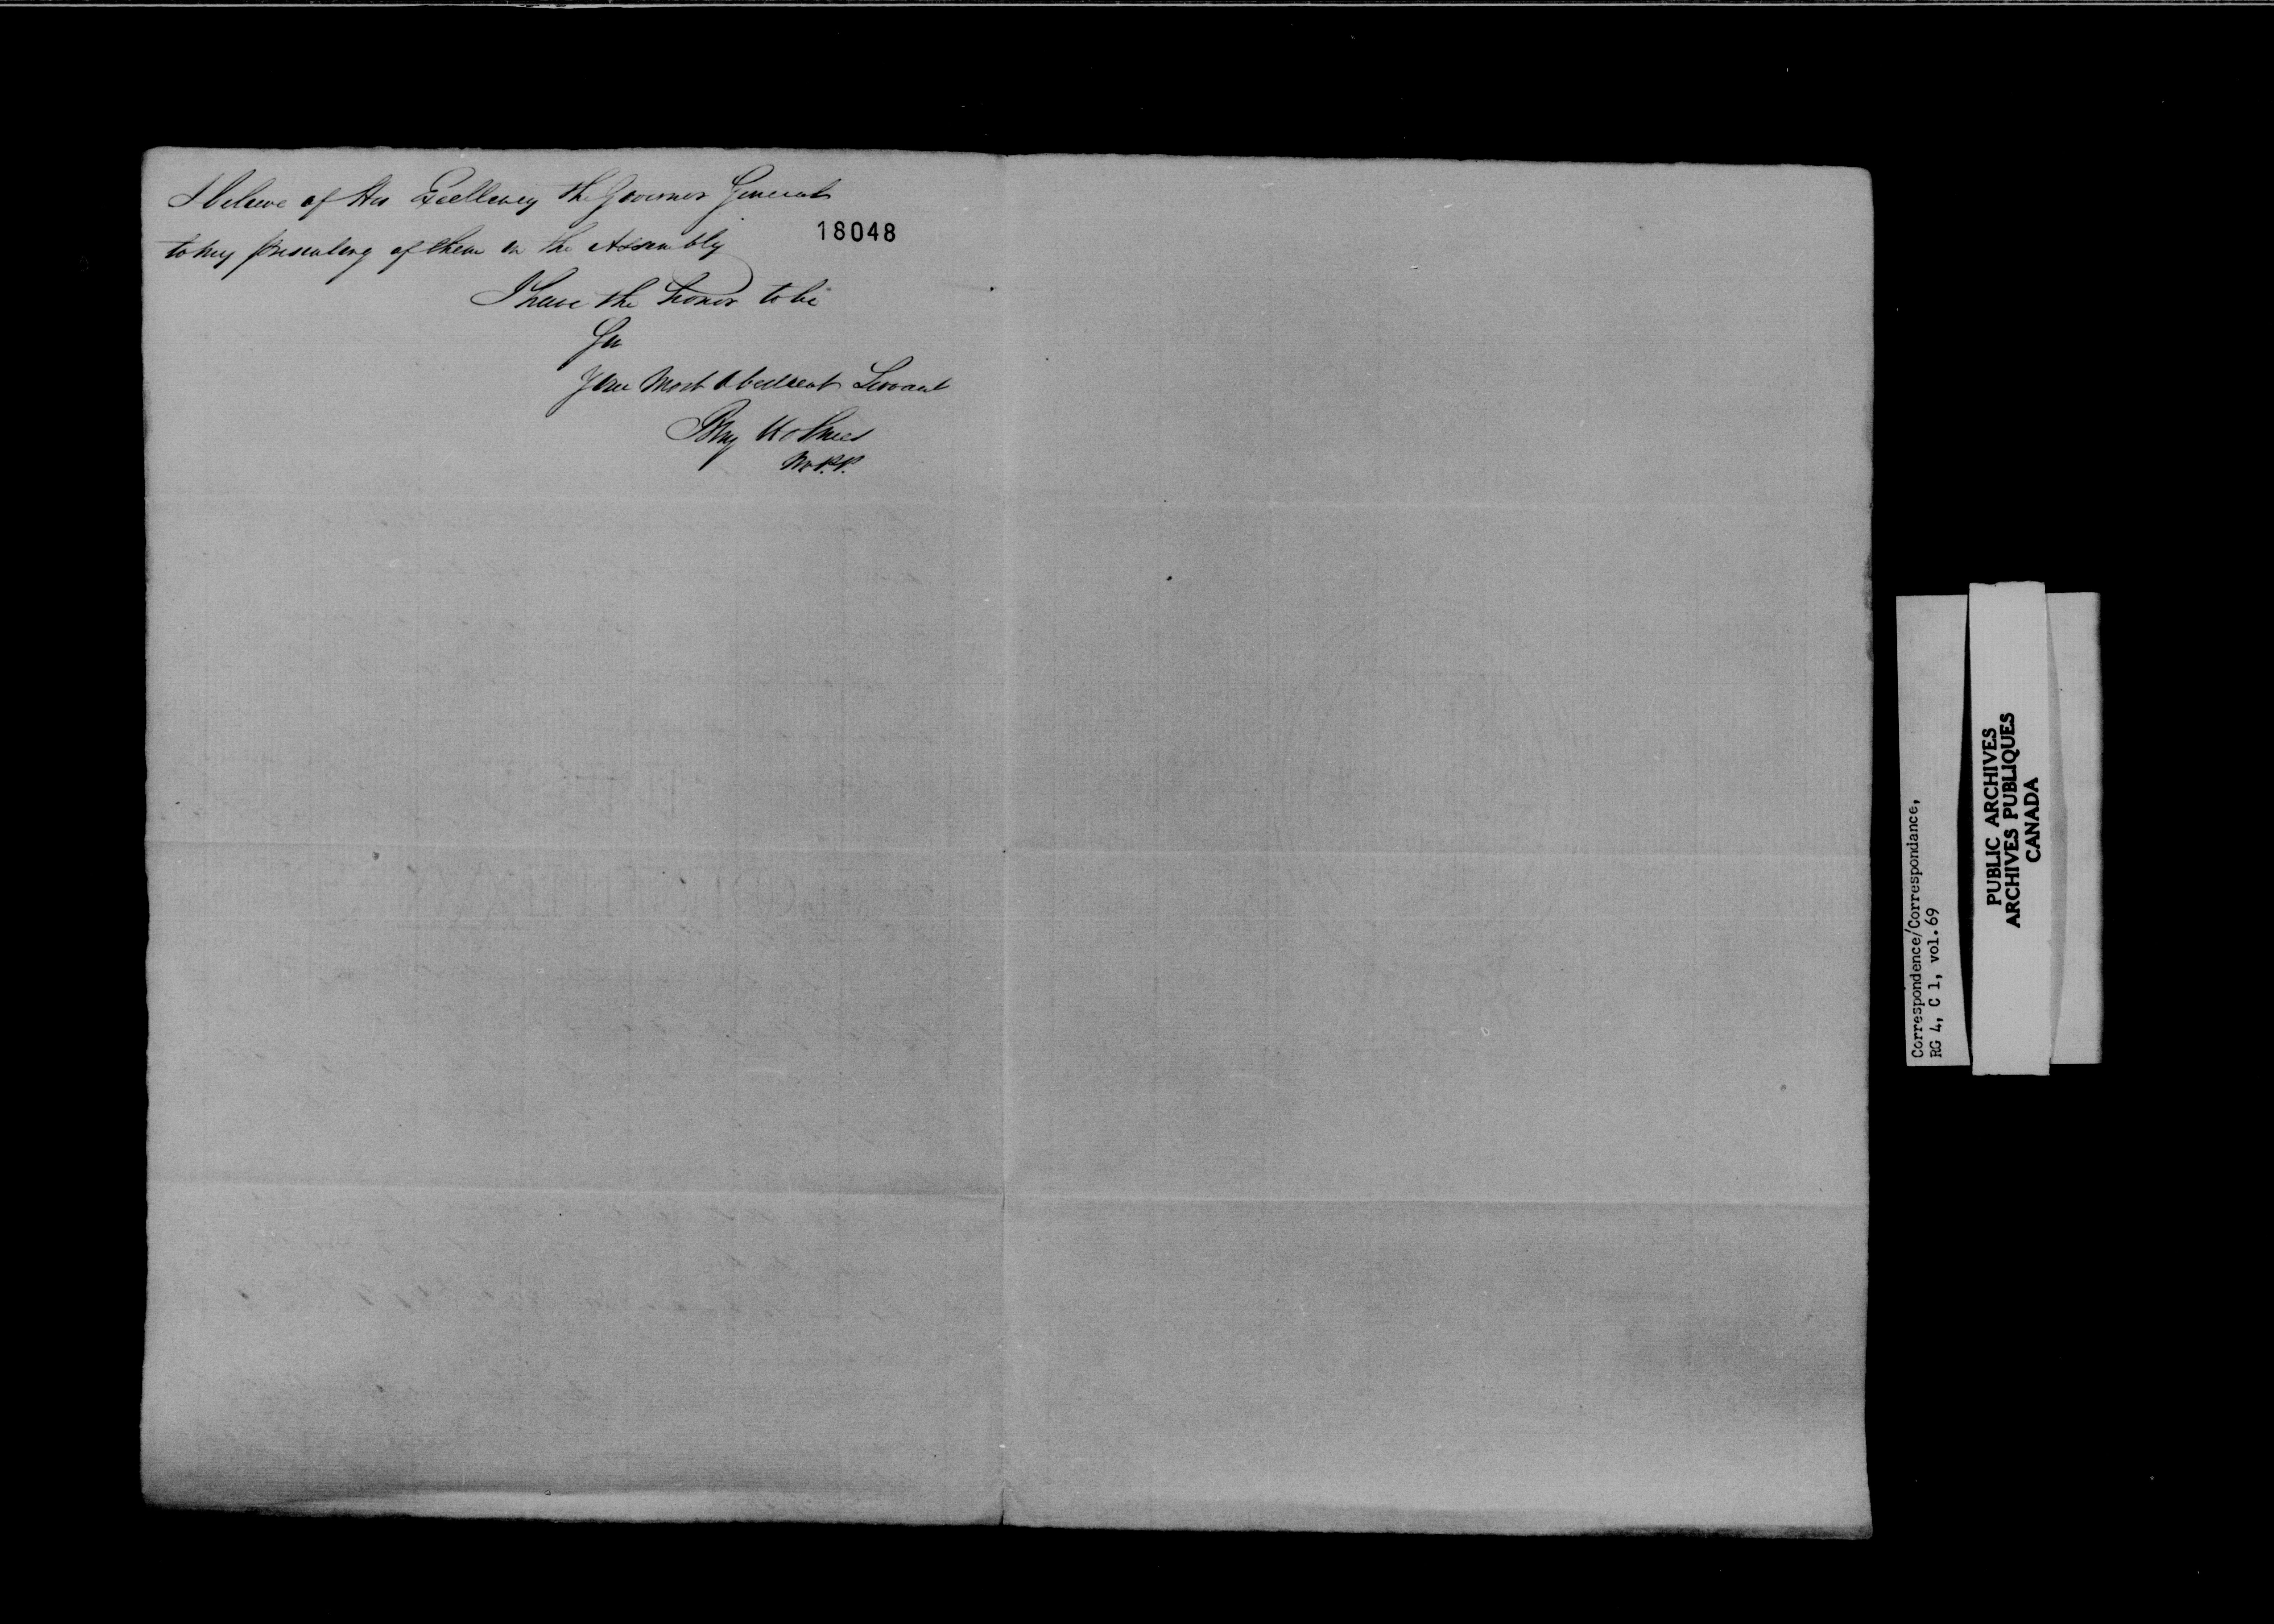 I believe of His Excellency the Governor General
18048
to my presenting of them in the Assembly
I have the honor to be
Sir
Your Most Obedient Servant
Benj Holmes
M.P.P.
Correspondence/Correspondance,
RG 4, C 1, vol. 69
PUBLIC ARCHIVES
ARCHIVES PUBLIQUES
CANADA